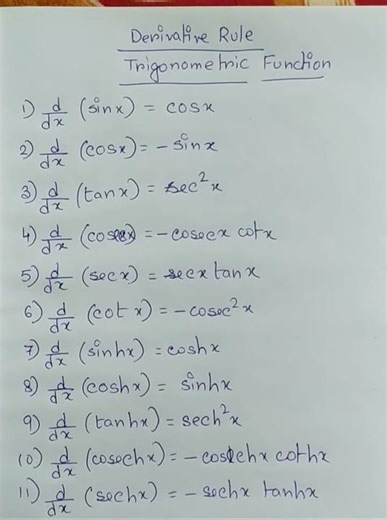 Derivative Rule
Trigonometric Function
1) d/dx (sinx) = cosx
2) d/dx (cosx) = -sinx
3) d/dx (tanx) = sec²x
4) d/dx (cosecx) = -cosecx cotx
5) d/dx (secx) = secx tanx
6) d/dx (cot x) = -cosec²x
7) d/dx (sinhx) = coshx
8) d/dx (coshx) = sinhx
9) d/dx (tanhx) = sech²x
10) d/dx (cosechx) = -cosechx cothx
11) d/dx (sechx) = -sechx tanhx